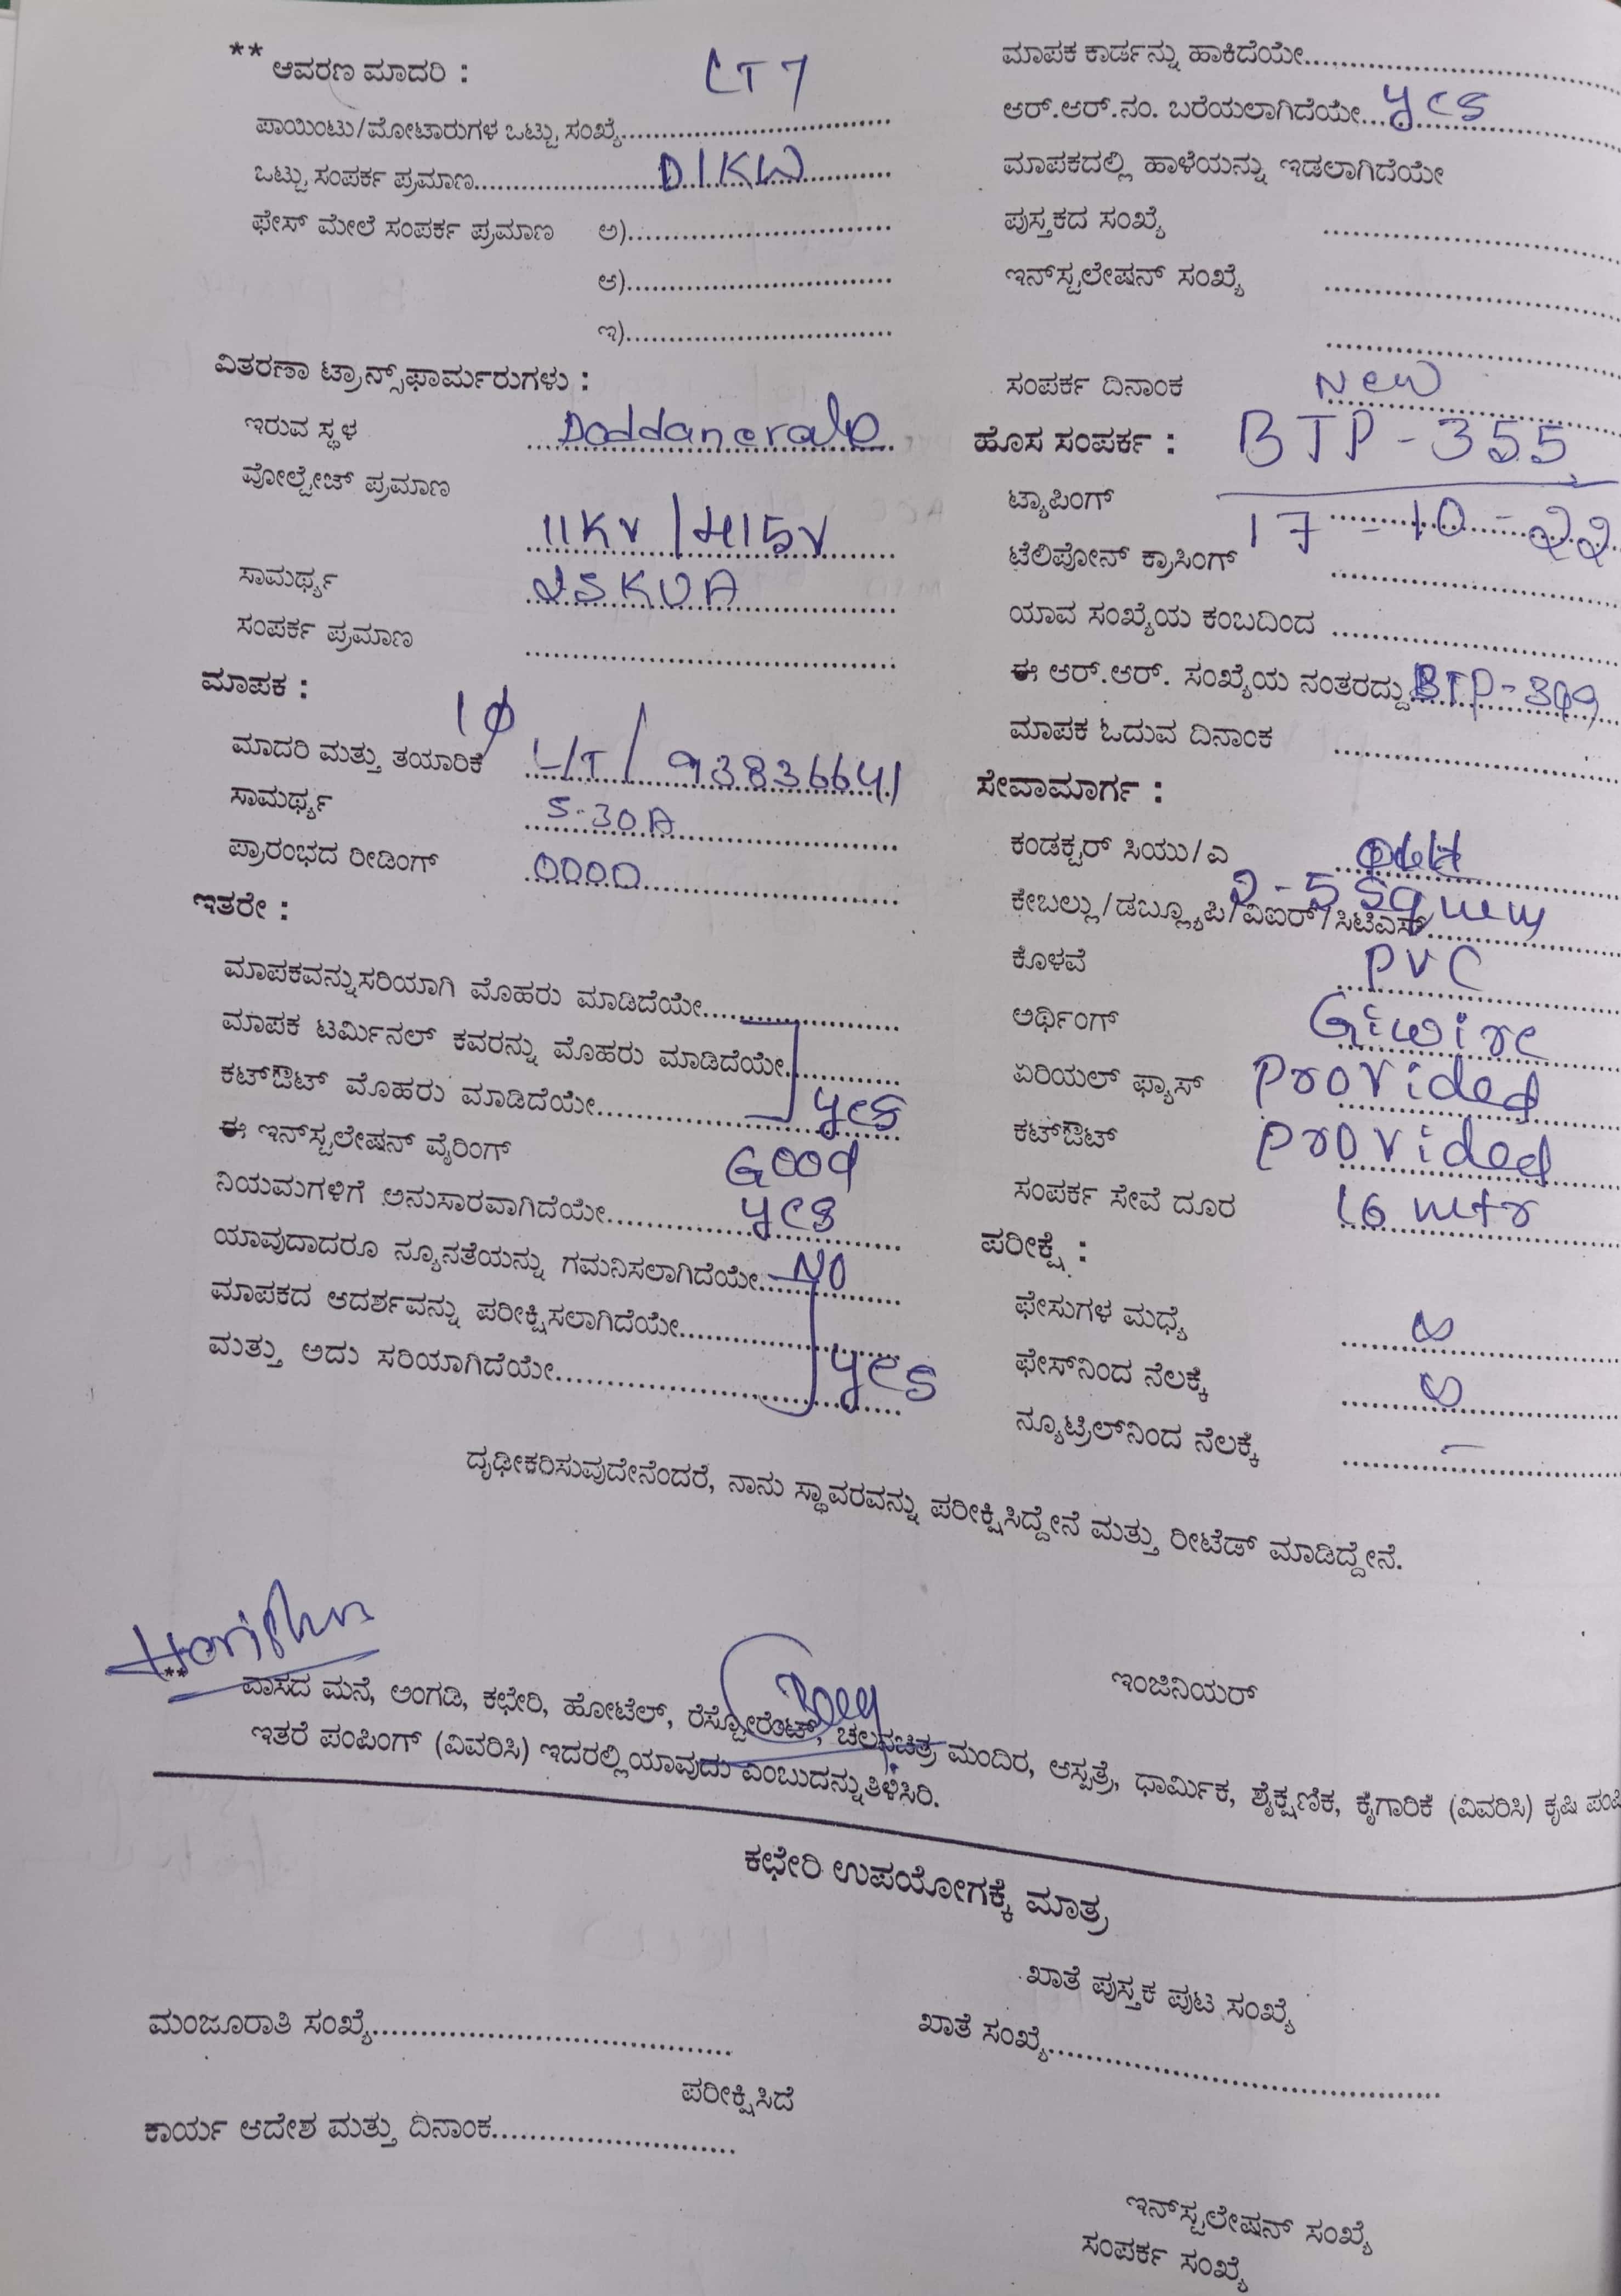 ** ಆವರಣ ಮಾದರಿ : LT7
ಪಾಯಿಂಟು/ಮೋಟಾರುಗಳ ಒಟ್ಟು ಸಂಖ್ಯೆ..............................
ಒಟ್ಟು ಸಂಪರ್ಕ ಪ್ರಮಾಣ....................D1KW............
ಫೇಸ್ ಮೇಲೆ ಸಂಪರ್ಕ ಪ್ರಮಾಣ ಅ)..............................
ಆ)..............................
ಇ)..............................
ವಿತರಣಾ ಟ್ರಾನ್ಸ್‌ಫಾರ್ಮರುಗಳು :
ಇರುವ ಸ್ಥಳ Doddanerale
ವೋಲ್ಟೇಜ್ ಪ್ರಮಾಣ
11KV / 415V
ಸಾಮರ್ಥ್ಯ 25KVA
ಸಂಪರ್ಕ ಪ್ರಮಾಣ ..............................
ಮಾಪಕ :
1φ
ಮಾದರಿ ಮತ್ತು ತಯಾರಿಕೆ L/T / 93836641
ಸಾಮರ್ಥ್ಯ 5-30A
ಪ್ರಾರಂಭದ ರೀಡಿಂಗ್ 0000
ಇತರೇ :
ಮಾಪಕವನ್ನುಸರಿಯಾಗಿ ಮೊಹರು ಮಾಡಿದೆಯೇ....................
ಮಾಪಕ ಟರ್ಮಿನಲ್ ಕವರನ್ನು ಮೊಹರು ಮಾಡಿದೆಯೇ............
ಕಟ್‌ಔಟ್ ಮೊಹರು ಮಾಡಿದೆಯೇ.................... yes
ಈ ಇನ್‌ಸ್ಟಲೇಷನ್ ವೈರಿಂಗ್ Good
ನಿಯಮಗಳಿಗೆ ಅನುಸಾರವಾಗಿದೆಯೇ............ yes
ಯಾವುದಾದರೂ ನ್ಯೂನತೆಯನ್ನು ಗಮನಿಸಲಾಗಿದೆಯೇ.... NO
ಮಾಪಕದ ಆದರ್ಶವನ್ನು ಪರೀಕ್ಷಿಸಲಾಗಿದೆಯೇ....................
ಮತ್ತು ಅದು ಸರಿಯಾಗಿದೆಯೇ.................... yes
ಮಾಪಕ ಕಾರ್ಡನ್ನು ಹಾಕಿದೆಯೇ..............................
ಆರ್.ಆರ್.ನಂ. ಬರೆಯಲಾಗಿದೆಯೇ... yes
ಮಾಪಕದಲ್ಲಿ ಹಾಳೆಯನ್ನು ಇಡಲಾಗಿದೆಯೇ
ಪುಸ್ತಕದ ಸಂಖ್ಯೆ ..............................
ಇನ್‌ಸ್ಟಲೇಷನ್ ಸಂಖ್ಯೆ ..............................
..............................
ಸಂಪರ್ಕ ದಿನಾಂಕ New
ಹೊಸ ಸಂಪರ್ಕ : BTP-355
ಟ್ಯಾಪಿಂಗ್ 17-10-22
ಟೆಲಿಪೋನ್ ಕ್ರಾಸಿಂಗ್ ..............................
ಯಾವ ಸಂಖ್ಯೆಯ ಕಂಬದಿಂದ ..............................
ಈ ಆರ್.ಆರ್. ಸಂಖ್ಯೆಯ ನಂತರದ್ದು BTP-
ಮಾಪಕ ಓದುವ ದಿನಾಂಕ ..............................
ಸೇವಾಮಾರ್ಗ :
ಕಂಡಕ್ಟರ್ ಸಿಯು/ಎ
ಕೇಬಲ್ಲು/ಡಬ್ಲ್ಯೂಪಿ/ವಿಐರ್/ಸಿಟಿಎಸ್ 2-5 Sqmm
ಕೊಳವೆ PVC
ಅರ್ಥಿಂಗ್ Gi wire
ಏರಿಯಲ್ ಫ್ಯಾಸ್ Provided
ಕಟ್‌ಔಟ್ Provided
ಸಂಪರ್ಕ ಸೇವೆ ದೂರ 16 mtr
ಪರೀಕ್ಷೆ :
ಫೇಸುಗಳ ಮಧ್ಯೆ ∞
ಫೇಸ್‌ನಿಂದ ನೆಲಕ್ಕೆ ∞
ನ್ಯೂಟ್ರಿಲ್‌ನಿಂದ ನೆಲಕ್ಕೆ –
ದೃಢೀಕರಿಸುವುದೇನೆಂದರೆ, ನಾನು ಸ್ಥಾವರವನ್ನು ಪರೀಕ್ಷಿಸಿದ್ದೇನೆ ಮತ್ತು ರೀಟೆಡ್ ಮಾಡಿದ್ದೇನೆ.
ಇಂಜಿನಿಯರ್
** ವಾಸದ ಮನೆ, ಅಂಗಡಿ, ಕಛೇರಿ, ಹೋಟೆಲ್, ರೆಸ್ಟೋರೆಂಟ್, ಚಲನಚಿತ್ರ ಮಂದಿರ, ಆಸ್ಪತ್ರೆ, ಧಾರ್ಮಿಕ, ಶೈಕ್ಷಣಿಕ, ಕೈಗಾರಿಕೆ (ವಿವರಿಸಿ) ಕೃಷಿ
ಇತರೆ ಪಂಪಿಂಗ್ (ವಿವರಿಸಿ) ಇದರಲ್ಲಿಯಾವುದು ಎಂಬುದನ್ನುತಿಳಿಸಿರಿ.
ಕಛೇರಿ ಉಪಯೋಗಕ್ಕೆ ಮಾತ್ರ
ಖಾತೆ ಪುಸ್ತಕ ಪುಟ ಸಂಖ್ಯೆ
ಮಂಜೂರಾತಿ ಸಂಖ್ಯೆ..............................
ಖಾತೆ ಸಂಖ್ಯೆ..............................
ಪರೀಕ್ಷಿಸಿದೆ
ಕಾರ್ಯ ಆದೇಶ ಮತ್ತು ದಿನಾಂಕ..............................
ಇನ್‌ಸ್ಟಲೇಷನ್ ಸಂಖ್ಯೆ
ಸಂಪರ್ಕ ಸಂಖ್ಯೆ